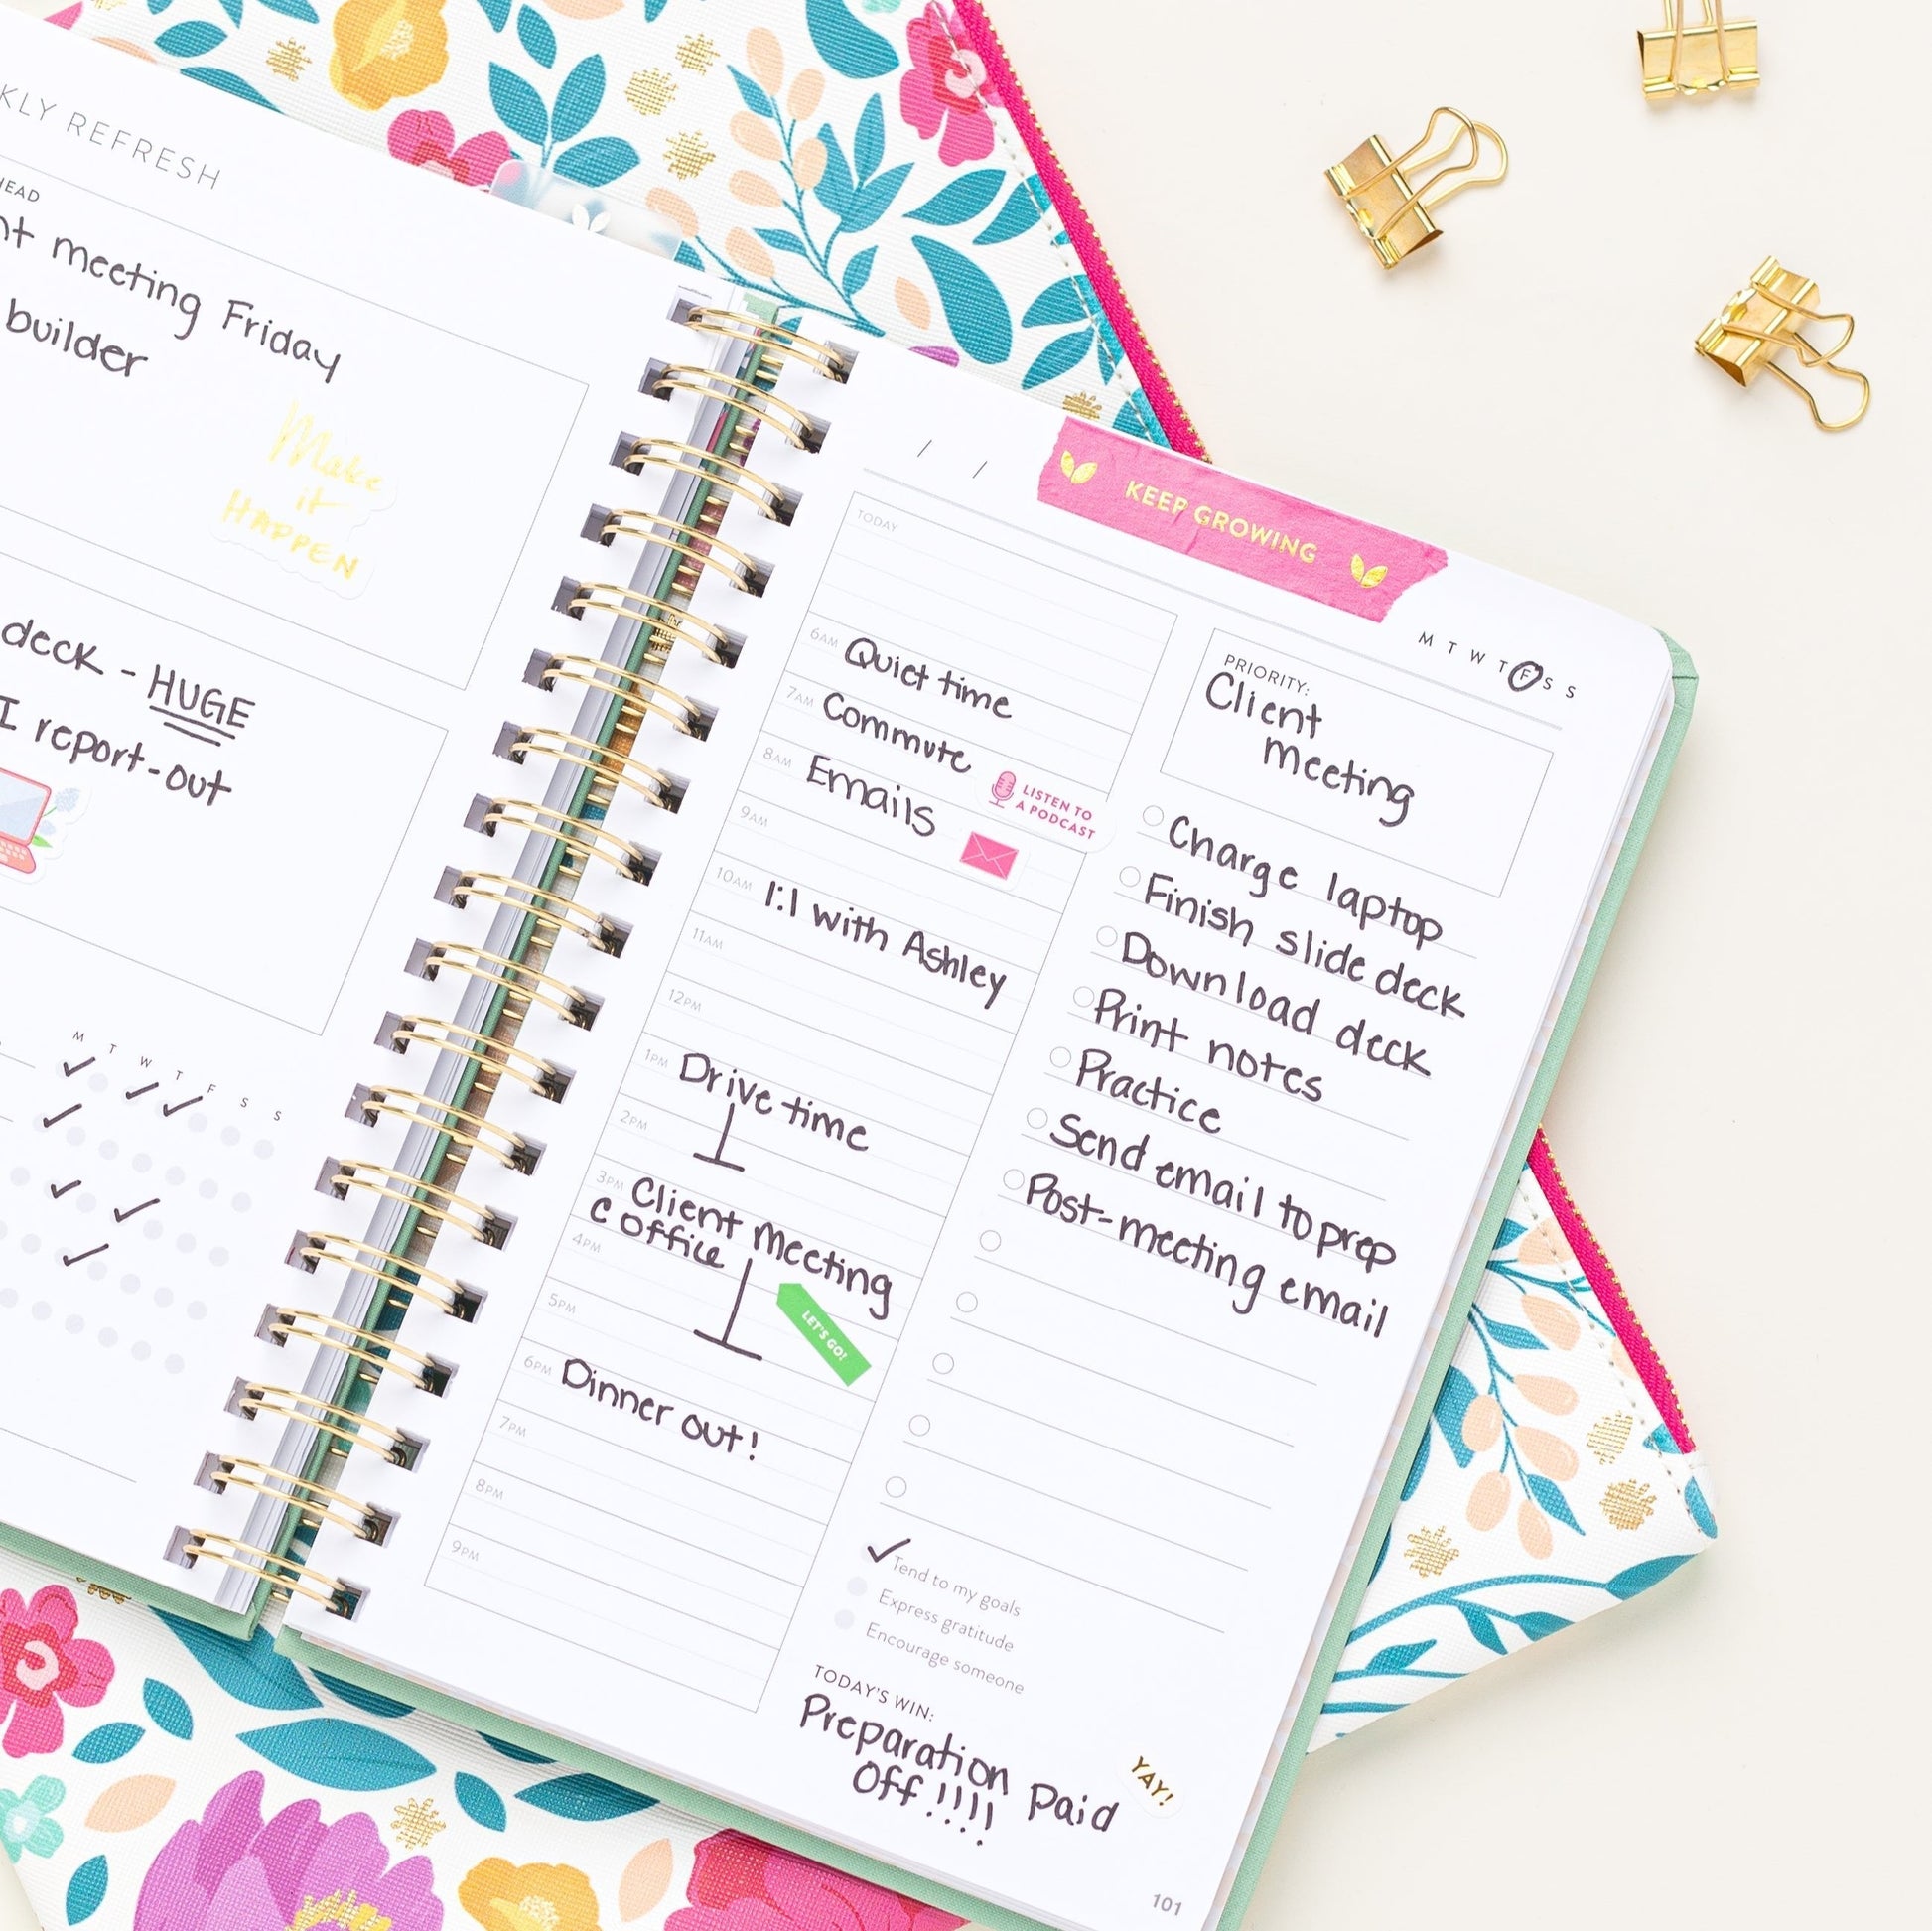 REFRESH
meeting Friday
builder
Make
it
HAPPEN
deck - HUGE
I report-out
M T W T F S S
/ /
KEEP GROWING
M T W T F S S
TODAY
6AM Quiet time
7AM Commute
LISTEN TO
A PODCAST
8AM Emails
9AM
10AM 1:1 with Ashley
11AM
12PM
1PM Drive time
2PM
3PM Client Meeting
C Office
4PM
LET'S GO!
5PM
6PM Dinner out!
7PM
8PM
9PM
PRIORITY:
Client
Meeting
Charge laptop
Finish slide deck
Download deck
Print notes
Practice
Send email to prep
Post-meeting email
Tend to my goals
Express gratitude
Encourage someone
TODAY'S WIN:
Preparation Paid
Off!!!!
YAY!
101